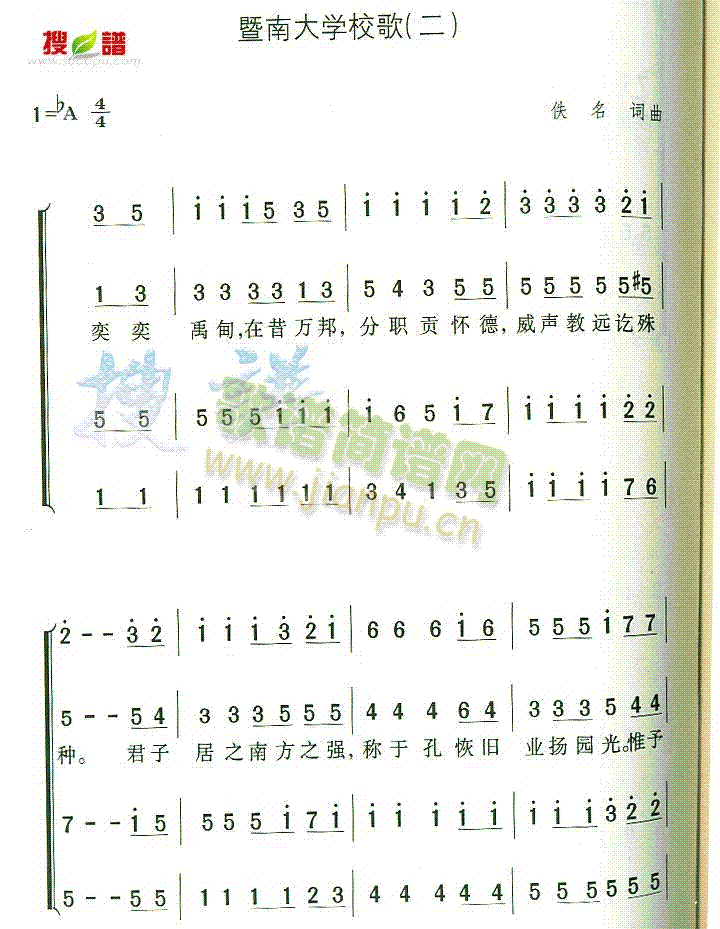 暨南大学校歌(二)
搜 譜
www.sooopu.com
1=♭A 4/4
佚 名 词曲
3 5 | i i i 5 3 5 | i i i i 2̇ | 3̇ 3̇ 3̇ 3̇ 2̇ i |
1 3 | 3 3 3 3 1 3 | 5 4 3 5 5 | 5 5 5 5 5 #5 |
奕 奕 禹 甸,在 昔 万 邦, 分 职 贡 怀 德, 威 声 教 远 讫 殊
5 5 | 5 5 5 i i i | i 6 5 i 7 | i i i i 2̇ 2̇ |
1 1 | 1 1 1 1 1 1 | 3 4 1 3 5 | i i i i 7 6 |
歌谱简谱网
www.jianpu.cn
2̇ - - 3̇ 2̇ | i i i 3̇ 2̇ i | 6 6 6 i 6 | 5 5 5 i 7 7 |
5 - - 5 4 | 3 3 3 5 5 5 | 4 4 4 6 4 | 3 3 3 5 4 4 |
种。 君 子 居 之 南 方 之 强, 称 于 孔 恢 旧 业 扬 园 光。惟 予
7 - - i 5 | 5 5 5 i 7 i | i i i i i | i i i 3̇ 2̇ 2̇ |
5 - - 5 5 | 1 1 1 1 2 3 | 4 4 4 4 4 | 5 5 5 5 5 5 |